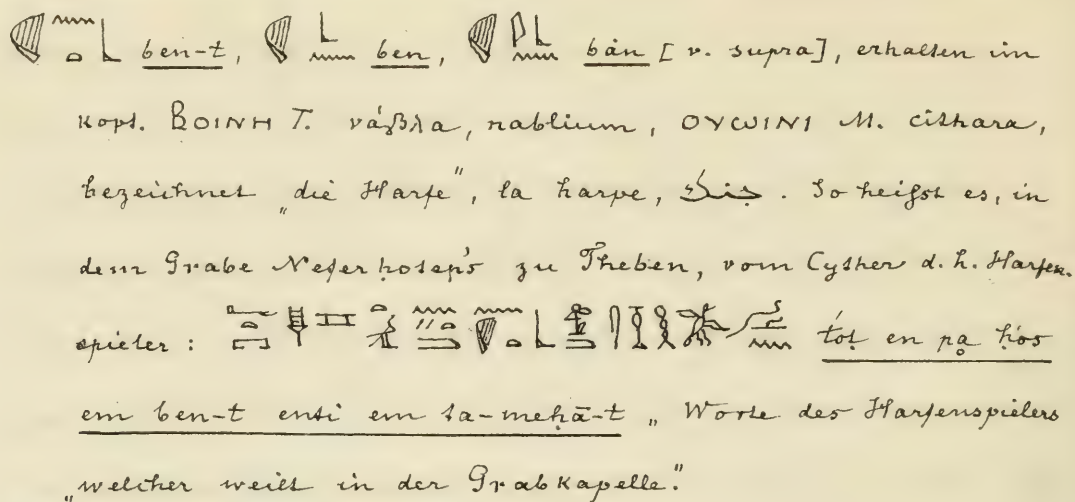 ben-t, ben, bàn [v. supra], erhalten im
kopt. ⲂⲞⲒⲚⲎ T. νάβλα, nablium, ⲞⲨⲰⲒⲚⲒ M. cithara,
bezeichnet „die Harfe", la harpe, جنك. So heißt es, in
dem Grabe Neferhotep's zu Theben, vom Cyther d. h. Harfen-
spieler: tot en pa hos
em ben-t enti em ta-mehā-t „Worte des Harfenspielers
„welcher weilt in der Grabkapelle."